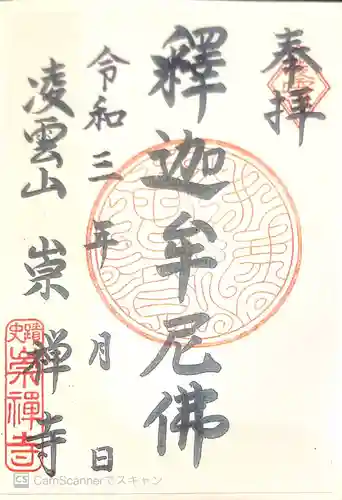 奉拝
釋迦牟尼佛
令和三年 月 日
凌雲山 崇禅寺
史蹟
崇禪寺
CS CamScannerでスキャン